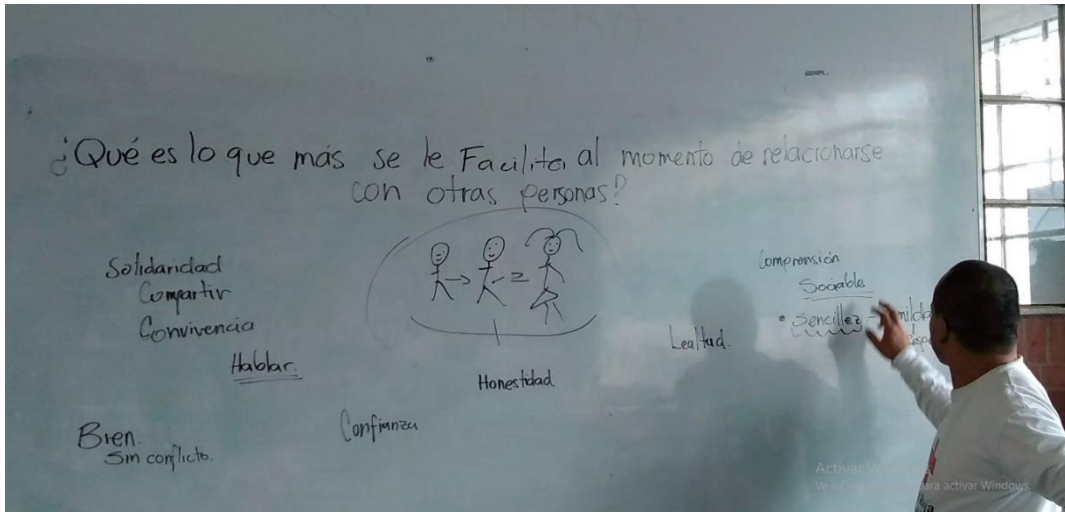 ¿Qué es lo que más se le Facilita al momento de relacionarse
con otras personas?
Solidaridad
Compartir
Convivencia
Hablar.
Bien.
Sin conflicto.
Confianza
Honestidad
Lealtad.
Comprensión
Sociable
• Sencillez -
Activar
para activar Windows.